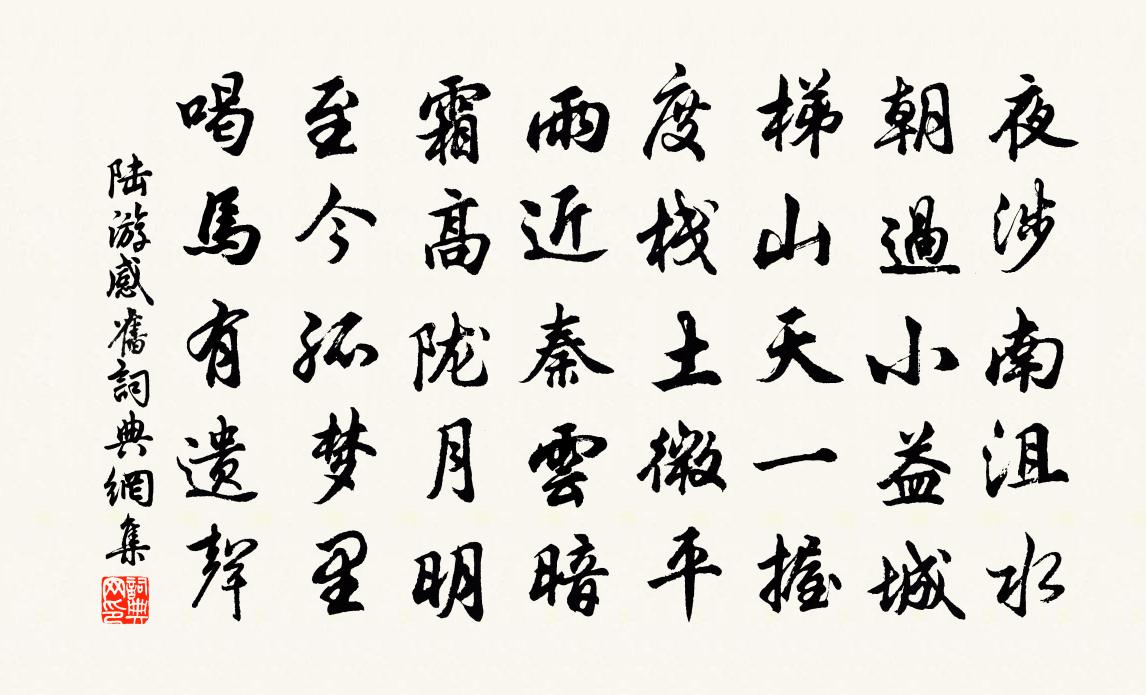 夜涉南沮水
朝過小益城
梯山天一握
度栈土微平
雨近秦雲暗
霜高陇月明
至今孤梦里
喝馬有遗聲
陆游感舊詞典網集
詞典